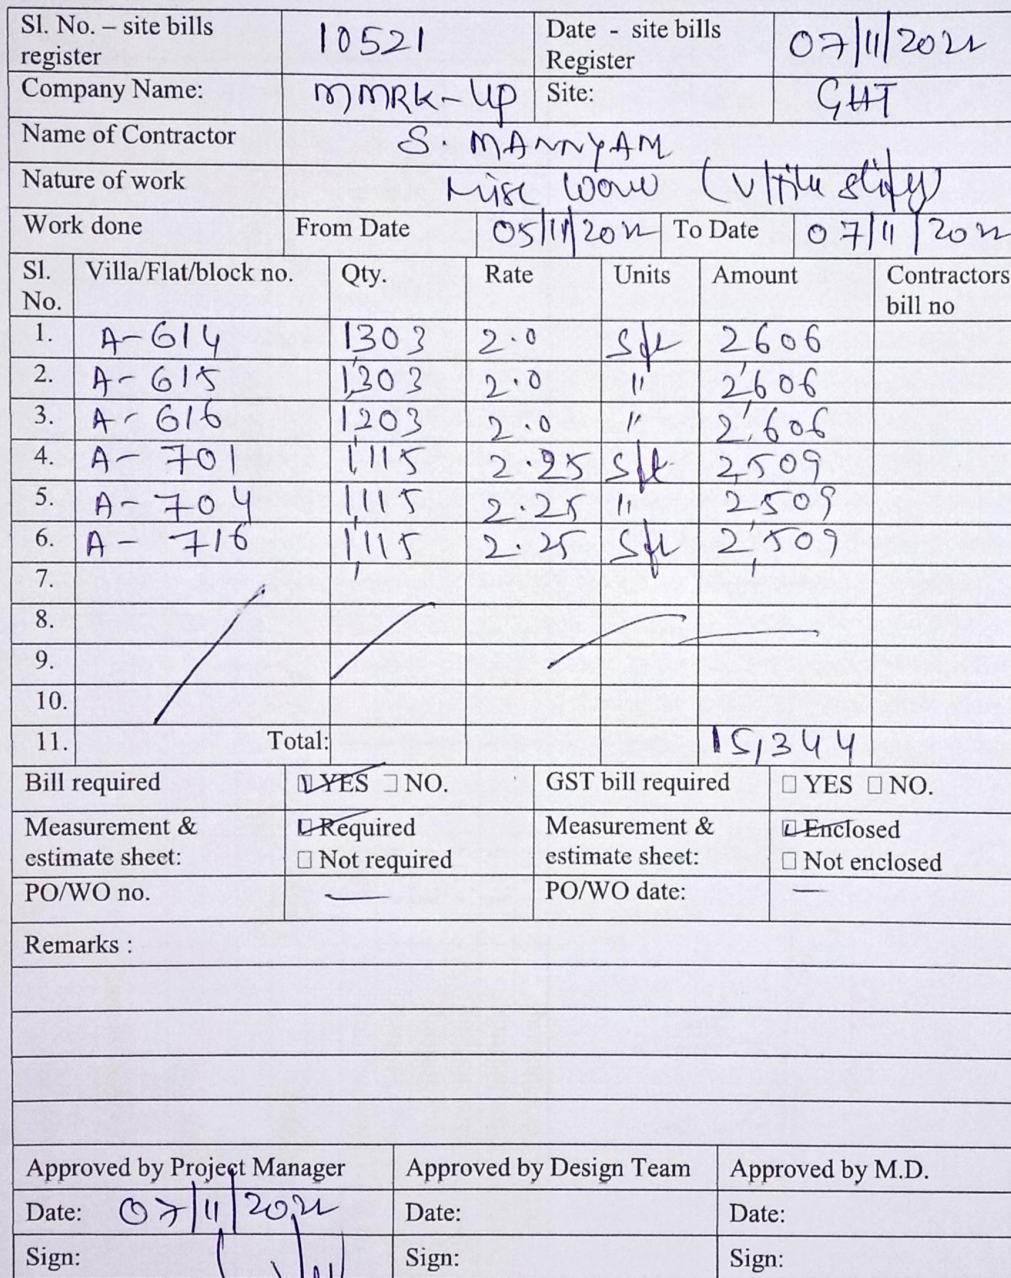 Sl. No. – site bills register 10521 Date - site bills Register 07/11/2022
Company Name: MMRK-UP Site: GHT
Name of Contractor S. MANNYAM
Nature of work Misc
Work done From Date 05/11/2022 To Date 07/11/2022
Sl. No. Villa/Flat/block no. Qty. Rate Units Amount Contractors bill no
1. A-614 1303 2.0 Sft 2606
2. A-615 1303 2.0 " 2606
3. A-616 1303 2.0 " 2,606
4. A-701 1115 2.25 Sft 2,509
5. A-704 1115 2.25 " 2509
6. A-716 1115 2.25 Sft 2,509
7.
8.
9.
10.
11. Total: 15,344
Bill required ☑ YES □ NO. GST bill required □ YES □ NO.
Measurement & estimate sheet: ☑ Required □ Not required Measurement & estimate sheet: ☑ Enclosed □ Not enclosed
PO/WO no. — PO/WO date: —
Remarks :
Approved by Project Manager Approved by Design Team Approved by M.D.
Date: 07/11/2022 Date: Date:
Sign: Sign: Sign: